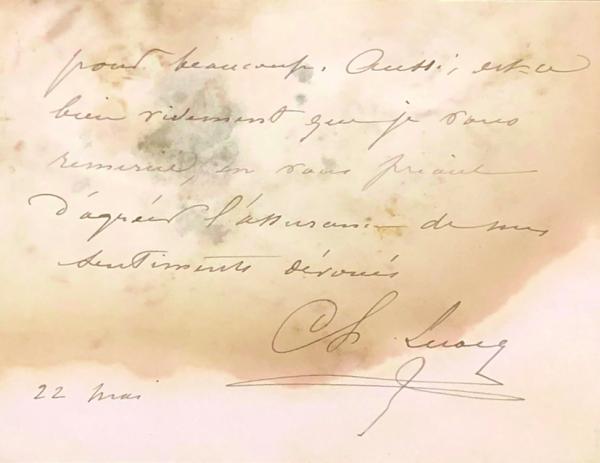 pour beaucoup. Aussi, est-ce
bien vivement que je vous
remercie, en vous priant
d'agréer l'assurance de mes
sentiments dévoués
Ch. Lecocq
22 mai